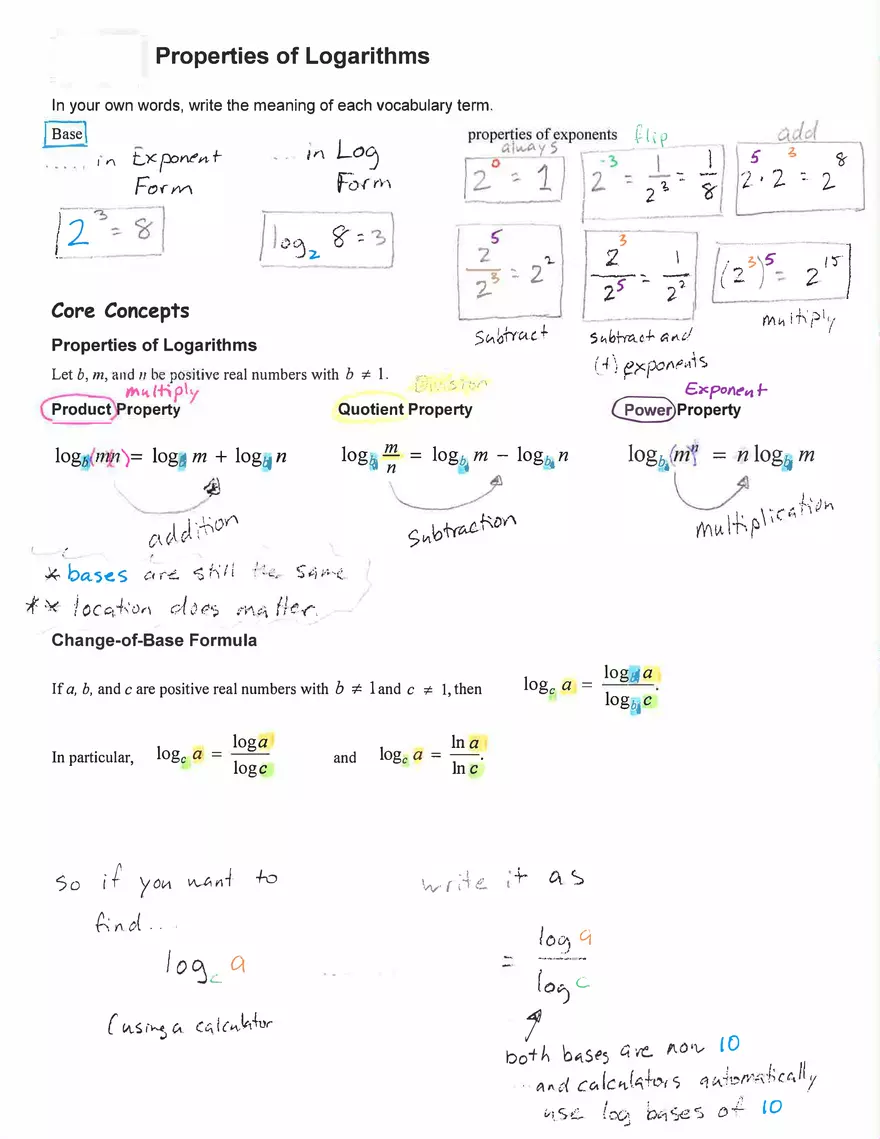 Properties of Logarithms
In your own words, write the meaning of each vocabulary term.
Base
..... in Exponent Form
2^3 = 8
... in Log Form
log_2 8 = 3
properties of exponents
always
2^0 = 1
flip
2^-3 = 1/2^3 = 1/8
add
2^5 · 2^3 = 2^8
2^5/2^3 = 2^2
Subtract
2^3/2^5 = 1/2^2
Subtract and
(+) exponents
(2^3)^5 = 2^15
multiply
Core Concepts
Properties of Logarithms
Let b, m, and n be positive real numbers with b ≠ 1.
multiply
Product Property
Division
Quotient Property
Exponent
Power Property
log_b (mn) = log_b m + log_b n
log_b m/n = log_b m − log_b n
log_b (m)^n = n log_b m
addition
Subtraction
Multiplication
* bases are still the same
** location does matter.
Change-of-Base Formula
If a, b, and c are positive real numbers with b ≠ 1 and c ≠ 1, then log_c a = log_b a / log_b c.
In particular, log_c a = log a / log c and log_c a = ln a / ln c.
So if you want to
find....
log_c a
(using a calculator
write it as
= log a / log c
both bases are now 10
... and calculators automatically
use log bases of 10